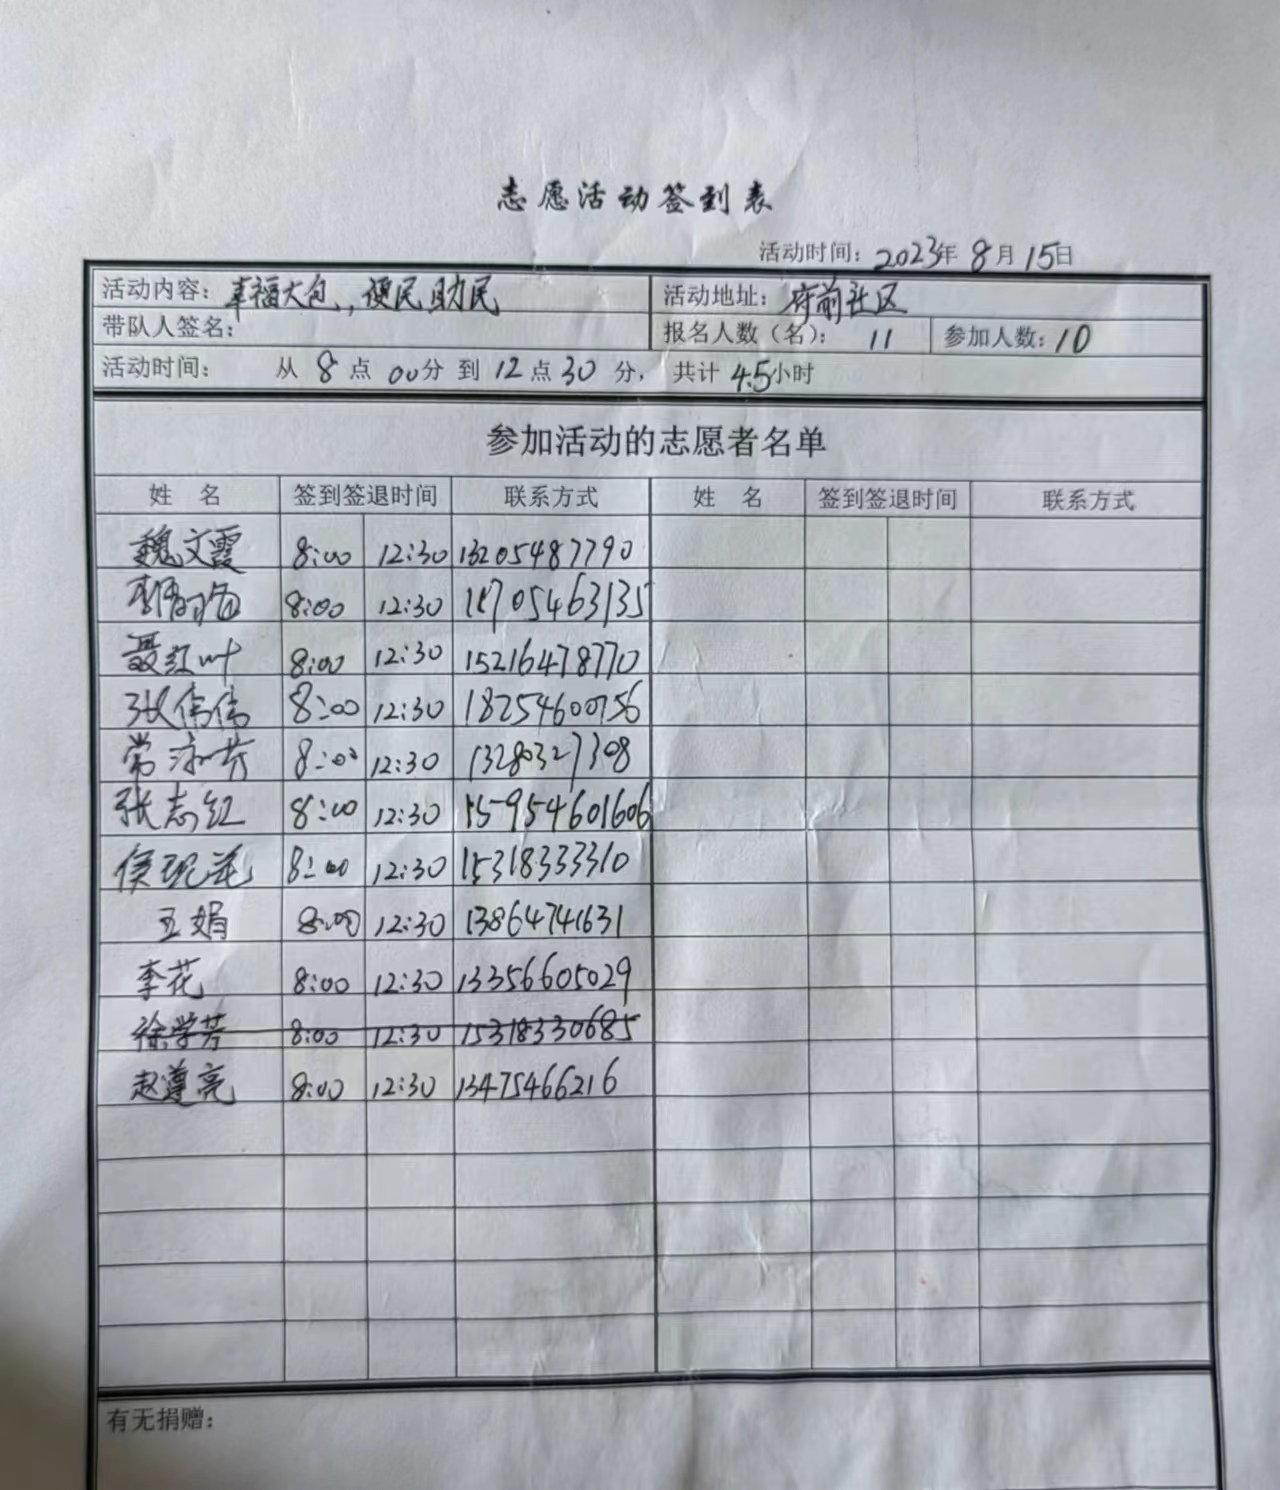 志愿活动签到表
活动时间：2023年8月15日
活动内容：幸福大包，便民助民 活动地址：府前社区
带队人签名： 报名人数（名）：11 参加人数：10
活动时间： 从8点00分到12点30分，共计4.5小时
参加活动的志愿者名单
姓 名 签到签退时间 联系方式 姓 名 签到签退时间 联系方式
魏文霞 8:00 12:30 13205487790
8:00 12:30
聂红叶 8:00 12:30 15216478770
张倩倩 8:00 12:30 18254600756
常永芬 8:00 12:30 13280327308
张志红 8:00 12:30 15954601606
侯现花 8:00 12:30 15318333310
王娟 8:00 12:30 13864741631
李花 8:00 12:30 13356605029
徐学芳 8:00 12:30 15318330685
赵莲亮 8:00 12:30 13475466216
有无捐赠：